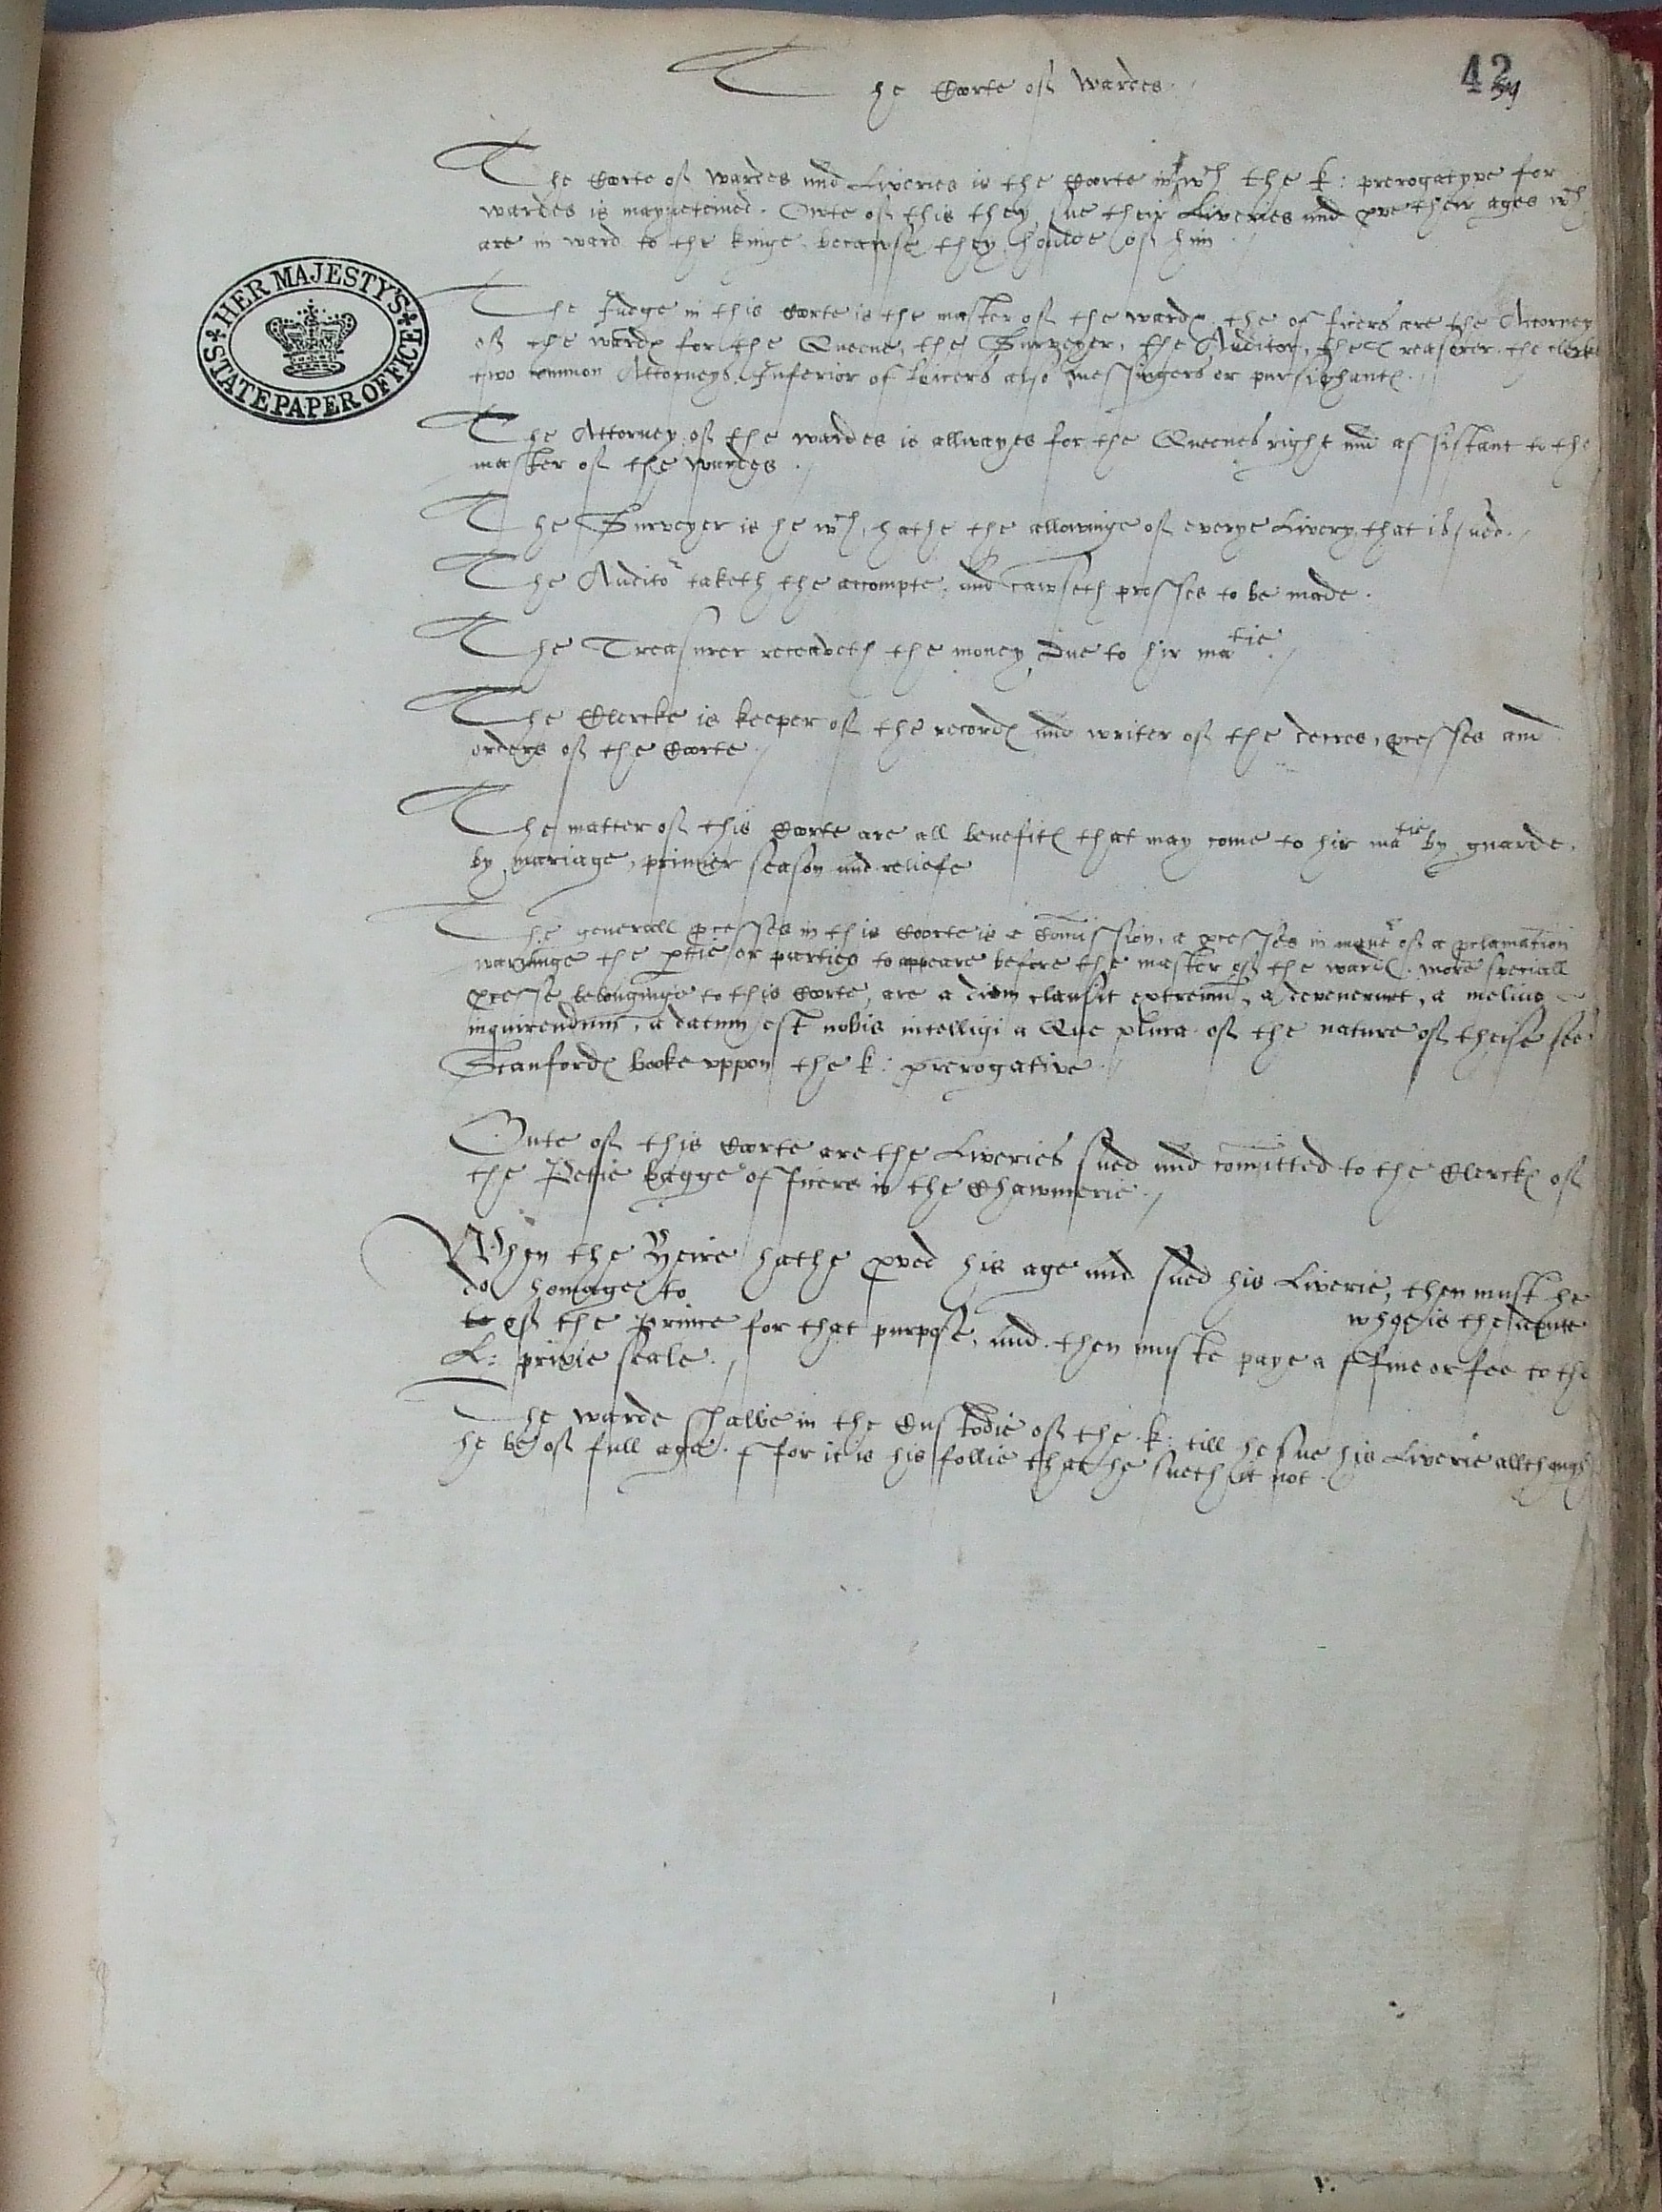 The Corte of Wardes.
42
The Corte of Wardes and Liveries is the Corte in wch the k: prerogatyve for
wardes is mayneteined. Owte of this they sue their Liveries and prove their ages wch
are in ward to the kinge, becawse they houlde of him
The Judge in this Corte is the master of the wardes, the officers are the Attorney
of the wardes for the Queene, the Surveyer, the Auditor, the Treasorer, the clerke
two common Attorneys. Inferior officers also messingers or pursiphantes.
The Attorney of the wardes is allwayes for the Queenes right and assistant to the
master of the wardes.
The Surveyer is he wch hathe the allowinge of everye Livery that is sued.
The Auditor taketh the accompte, and cawseth prosses to be made.
The Treasurer receaveth the money due to hir matie.
The Clercke is keeper of the recordes and writer of the decres, processes and
orders of the Corte.
The matter of this Corte are all benefites that may come to hir matie by guarde,
by mariage, primer season and reliefe
The generall processes in this Corte is a Comission, a processes in maner of a proclamation
warninge the partie or parties to appeare before the master of the wardes. more speciall
processe belonginge to this Corte, are a diem clausit extremum, a devenerunt, a melius
inquirendum, a datum est nobis intelligi a Que plura of the nature of theise see
Stanfordes booke uppon the k: prerogative.
Oute of this Corte are the Liveries sued and comitted to the Clerckes of
the Pettie bagge officers in the Chawncerie.
When the Heire hathe proved his age and sued his Liverie, then must he
do homage to whoe is the depute
to of the Prince for that purpose, and then muste paye a ffine or fee to the
L: privie seale.
The warde shalbe in the Custodie of the k: till he sue his Liverie allthough
he be of full age. ffor it is his follie that he sueth it not.
HER MAJESTY'S STATE PAPER OFFICE